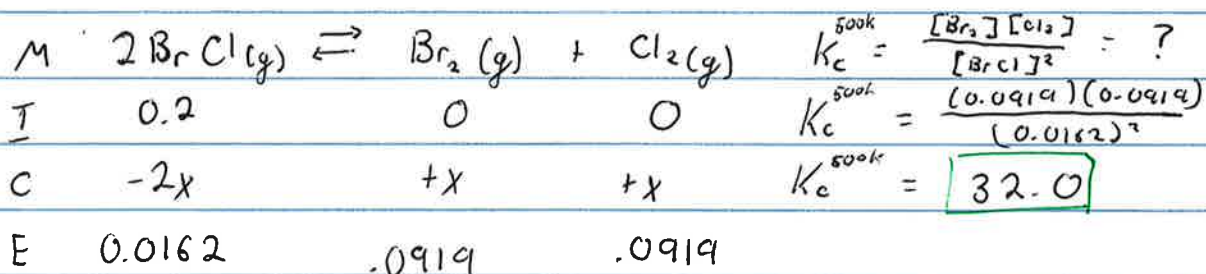 M 2BrCl(g) ⇌ Br₂(g) + Cl₂(g) Kc⁵⁰⁰ᵏ = [Br₂][Cl₂] / [BrCl]² = ?
I 0.2 0 0 Kc⁵⁰⁰ᵏ = (0.0919)(0.0919) / (0.0162)²
C -2x +x +x Kc⁵⁰⁰ᵏ = 32.0
E 0.0162 .0919 .0919